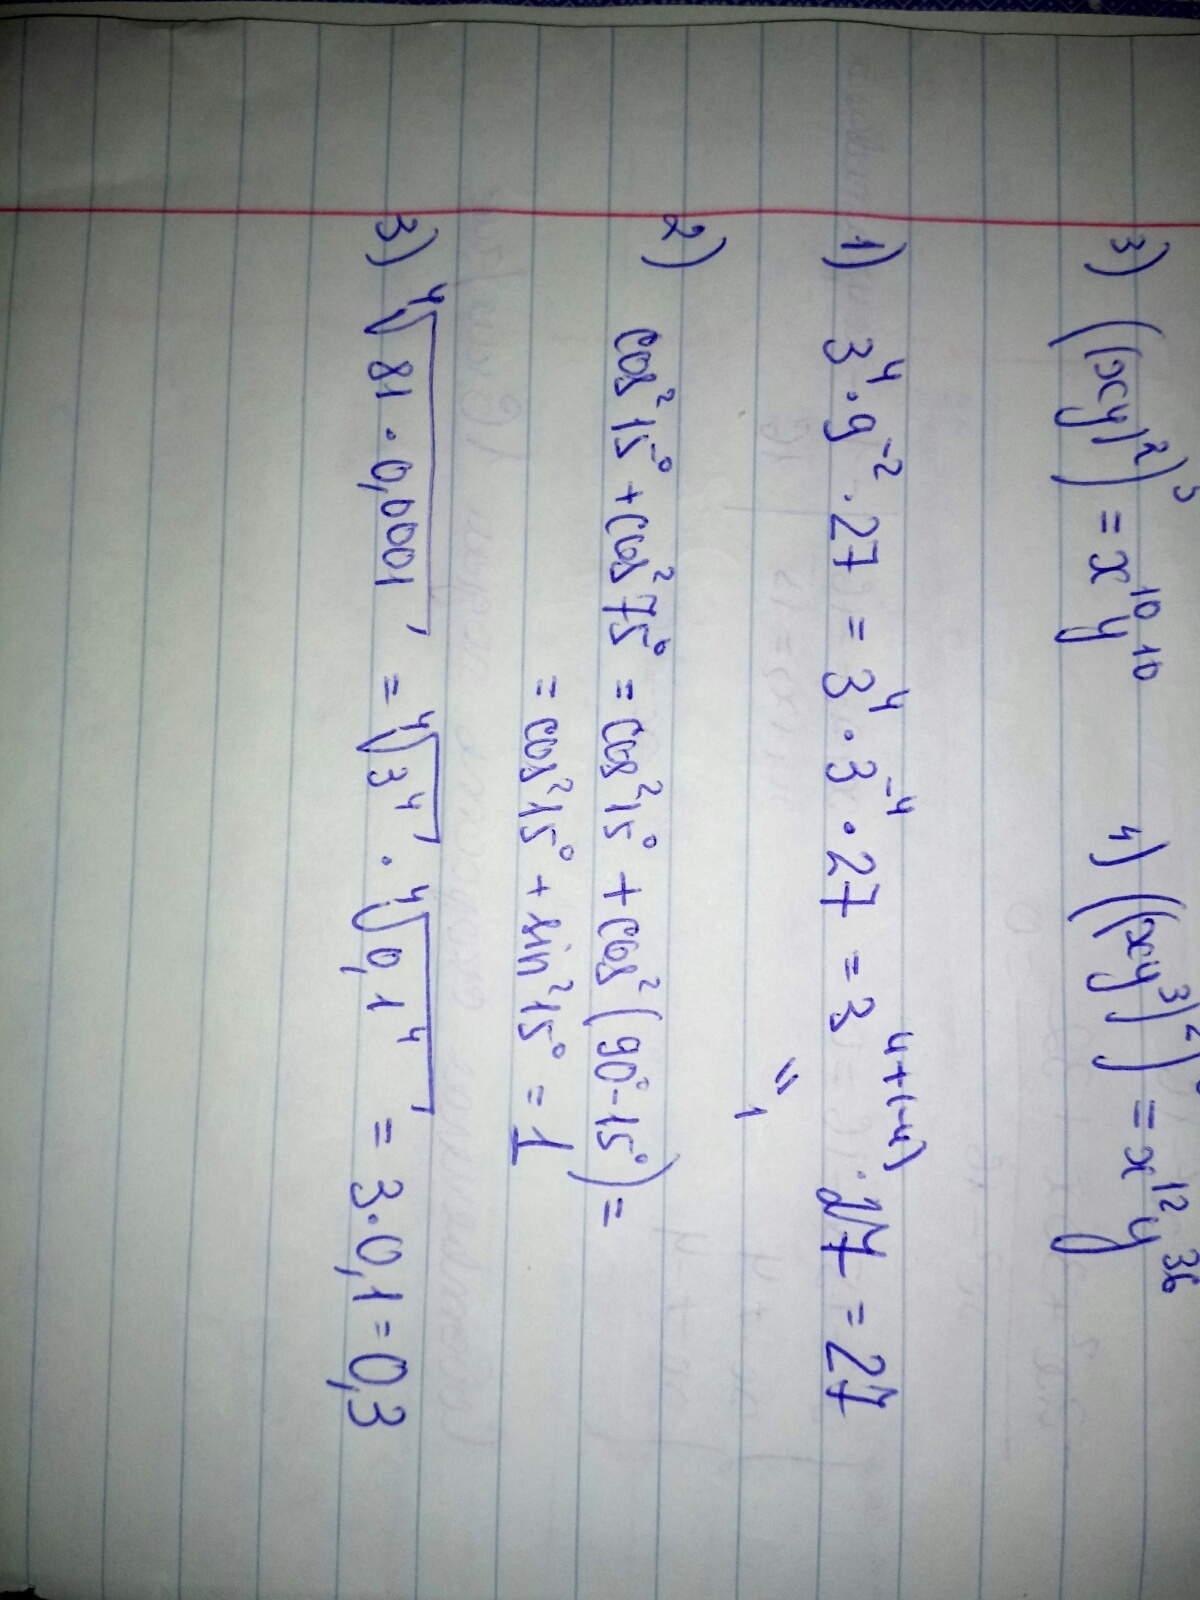 3) ((xy)²)⁵ = x¹⁰y¹⁰ 4) ((xy³)² = x¹²y³⁶
1) 3⁴·9⁻²·27 = 3⁴·3⁻⁴·27 = 3⁴⁺⁽⁻⁴⁾·27 = 27
" 1
2) cos²15° + cos²75° = cos²15° + cos²(90°-15°) =
= cos²15° + sin²15° = 1
3) ⁴√81·0,0001 = ⁴√3⁴ · ⁴√0,1⁴ = 3·0,1 = 0,3